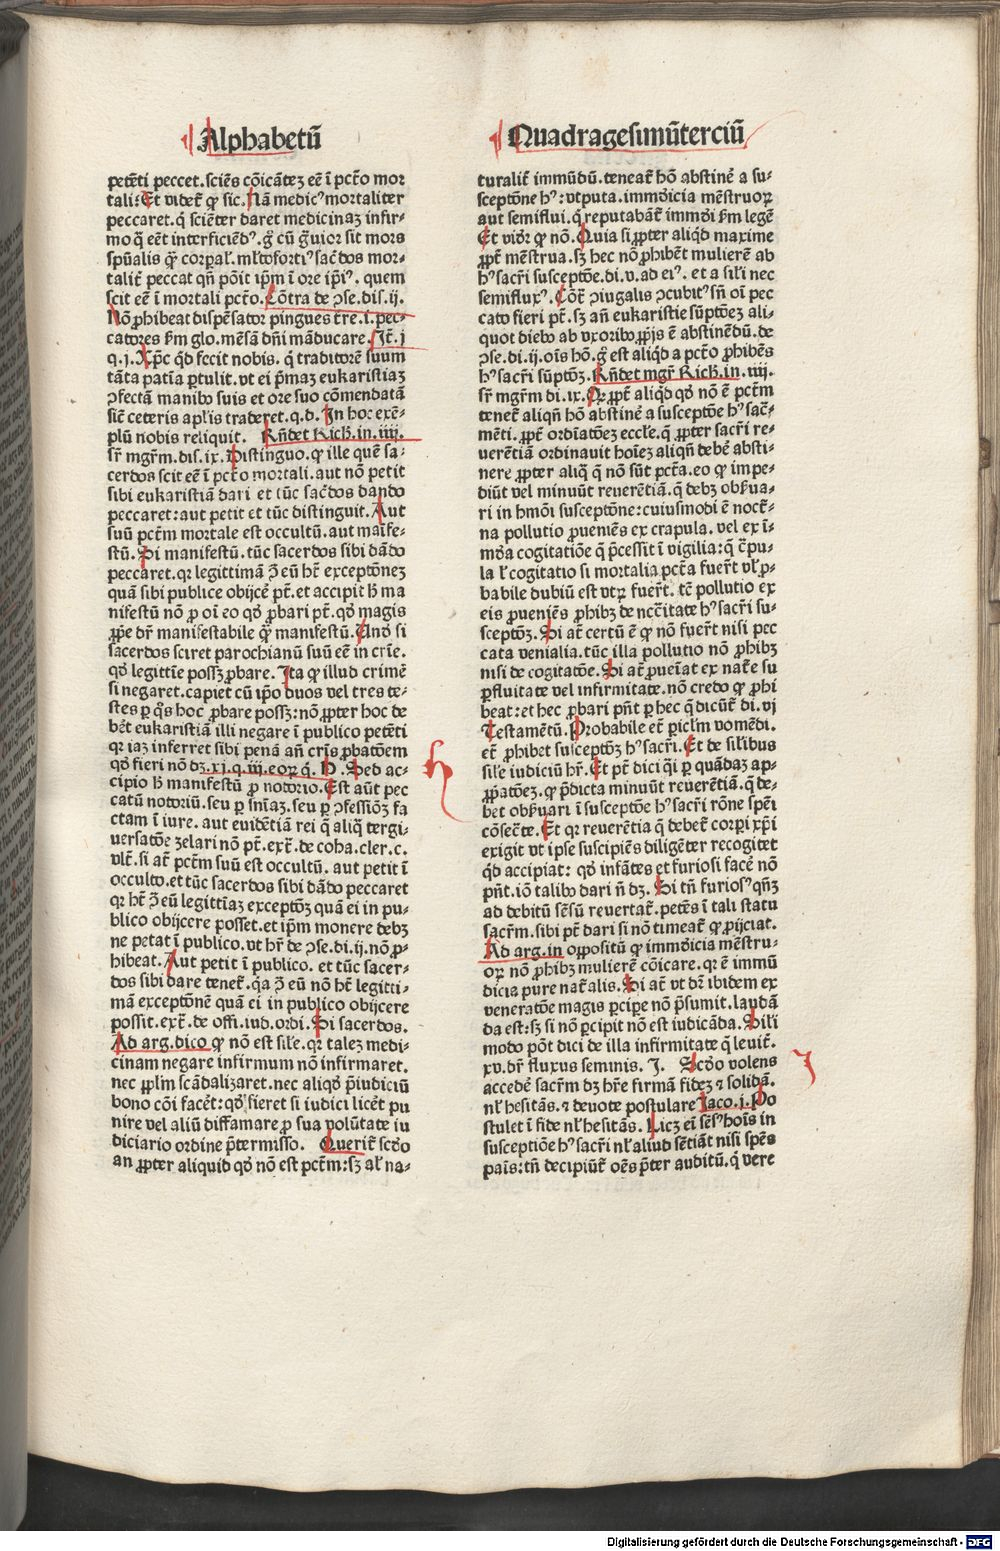 Alphabetū
petēti peccet. sciēs cōicātez eē ī pctō mor
tali: Et videt̄ ꝙ sic. Nā medicꝰ mortaliter
peccaret. q̇ sciēter daret medicinaz infir-
mo q̄ eēt interficiēdꝰ. g̊ cū g̊uior sit mors
spūalis q̄ꝫ corꝑal'. ml̄tofortiꝰ sac̄dos mor-
talit̄ peccat qn̄ pōit ip̄m ī ore ip̄iꝰ. quem
scit eē ī mortali pctō. Cōtra de ꝯse. dis. ij.
Nō ꝓhibeat dispēsator pingues t̄re. i. pec-
catores ẜm glo. mēsā dn̄i māducare. It̄. j
q. j. Xp̄c qd̄ fecit nobis. q̇ traditorē suum
tāta patīa ꝑtulit. vt ei p̄maz eukaristiaz
ꝯfectā manibꝰ suis et ore suo cōmendatā
sic̄ ceteris apl̄is traderet. q. d. In hoc exē-
plū nobis reliquit. Rn̄det Rich. in. iiij.
sr̄ mgr̄m. dis. ix. Distinguo. ꝙ ille quē sa-
cerdos scit eē ī pctō mortali. aut nō petit
sibi eukaristiā dari et tūc sac̄dos dando
peccaret: aut petit et tūc distinguit. Aut
suū pctm̄ mortale est occultū. aut maīfe-
stū. Si manifestū. tūc sacerdos sibi dādo
peccaret. qꝛ legittimā ꝯ̄ eū hꝫ exceptōneꝫ
quā sibi publice obijcē pt̄. et accipit h̄ ma
nifestū nō ꝓ oī eo qd̄ ꝓbari pt̄. qd̄ magis
ꝓpe dr̄ manifestabile q̄ꝫ manifestū. Uñ si
sacerdos sciret parochianū suū eē in crīe.
qd̄ legittīe possꝫ ꝓbare. Ita ꝙ illud crimē
si negaret. capiet cū ip̄o duos vel tres te-
stes ꝑ q̄s hoc ꝓbare possꝫ: nō ꝓpter hoc de
bēt eukaristiā illi negare ī publico petēti
qꝛ iaꝫ inferret sibi penā an̄ cris ꝓbatōem
qd̄ fieri nō dꝫ. xj. q. iij. eoꝝ q̄. H. Sed ac-
cipio h̄ manifestū ꝓ notorio. Est aūt pec
catū notoriū. seu ꝑ sn̄iaꝫ. seu ꝑ ꝯfessiōꝫ fa
ctam ī iure. aut evidētiā rei q̄ aliq̄ tergi-
versatōe zelari nō pt̄. ext̄. de coha. cler. c.
vlt̄. si at̄ pctm̄ suū est occultū. aut petit ī
occulto. et tūc sacerdos sibi dādo peccaret
qꝛ hꝫ ꝯ̄ eū legittīaꝫ exceptōꝫ quā ei in pu-
blico obijcere posset. et ip̄m monere debꝫ
ne petat ī publico. vt hr̄ de ꝯse. di. ij. nō ꝓ-
hibeat. Aut petit ī publico. et tūc sacer-
dos sibi dare tenet̄. q̇a ꝯ̄ eū nō hꝫ legitti-
mā exceptōnē quā ei in publico obijcere
possit. ext̄. de offi. iud. ordi. Si sacerdos.
Ad arg. dico ꝙ nō est sil'e. qꝛ taleꝫ medi-
cinam negare infirmum nō infirmaret.
nec ꝓl̄m scādalizaret. nec aliqd̄ p̄iudiciū
bono cōi facēt: qd̄ fieret si iudici licēt pu
nire vel aliū diffamare ꝓ sua volūtate iu
diciario ordine p̄termisso. Querit̄ scd̄o
an ꝓpter aliquid qd̄ nō est pctm̄: sꝫ al' na-
Quadragesimūterciū
turalit̄ immūdū. teneat̄ hō abstinē a su-
sceptōne hꝰ: vtputa. immūdicia mēstruoꝝ
aut semiflui. q̇ reputabāt̄ immūdi ẜm legē
Et vid̄r ꝙ nō. Quia si ꝓpter aliqd̄ maxime
ꝓpt̄ mēstrua. sꝫ hec nō ꝓhibēt mulierē ab
hꝰ sacr̄i susceptōe. di. v. ad eiꝰ. et a sil'i nec
semifluxꝰ. Cōt̄ ꝯiugalis ꝯcubitꝰ sn̄ oī pec
cato fieri pt̄. sꝫ an̄ eukaristie sūptōeꝫ ali-
quot diebꝰ ab vxoribꝰ ꝓprijs ē abstinēdū. de
ꝯse. di. ij. oīs hō. g̊ est aliqd̄ a pctō ꝓhibēs
hꝰ sacr̄i sūptōꝫ. Rn̄det mgr̄ Rich. in. iiij.
sr̄ mgr̄m di. ix. Qꝛ ꝓpt̄ aliqd̄ qd̄ nō ē pctm̄
tenet̄ aliqn̄ hō abstinē a susceptōe hꝰ sac̄-
mēti. ꝓpt̄ ordīatōeꝫ eccl'e. q̄ ꝓpter sacr̄i re-
verētiā ordinavit hoīeꝫ aliqn̄ debē absti-
nere ꝓpter aliq̄ q̄ nō sūt pctā. eo ꝙ impe-
diūt vel minuūt reverētiā. q̄ debꝫ obẜua-
ri in hmōi susceptōne: cuiusmodi ē noct̄-
na pollutio ꝓveniēs ex crapula. vel ex ī-
mūda cogitatiōe q̄ p̄cessit ī vigilia: q̄ c̄pu-
la l' cogitatio si mortalia pctā fuer̄t vl' ꝓ-
babile dubiū est vtꝝ fuer̄t. tc̄ pollutio ex
eis ꝓveniēs ꝓhibꝫ de nc̄citate hꝰ sacr̄i su-
sceptōꝫ. Si at̄ certū ē ꝙ nō fuer̄t nisi pec
cata venialia. tūc illa pollutio nō ꝓhibꝫ
nisi de cogitatōe. Si at̄ ꝓveīat ex nat̄e su
ꝑfluitate vel infirmitate. nō credo ꝙ ꝓhi
beat: et hec ꝓbari pn̄t ꝑ hec q̄ dicūt̄ di. vj
Testamētū. Probabile et̄ picl'm vomēdi.
et̄ ꝓhibet susceptōꝫ hꝰ sacr̄i. Et de sil'ibus
sil'e iudiciū hr̄. Et pt̄ dici q̄ ꝑ quādaꝫ ap-
ꝓp̄atōeꝫ. ꝙ p̄dicta minuūt reverētiā. q̄ de-
bet obẜuari ī susceptōe hꝰ sacr̄i rōne sp̄ei
cōsec̄te. Et qꝛ reverētia q̄ debet̄ corꝑi xp̄i
exigit vt ip̄e suscipiēs diligēter recogitet
qd̄ accipiat: qd̄ infātes et furiosi facē nō
pn̄t. iō talibꝰ dari n̄ dꝫ. Si tn̄ furiosꝰ qn̄ꝫ
ad debitū sēsū revertat̄. petēs ī tali statu
sacr̄m. sibi pt̄ dari si nō timeat̄ ꝙ ꝓijciat.
Ad arg. in oppositū ꝙ immūdicia mēstru-
oꝝ nō ꝓhibꝫ mulierē cōicare. qꝛ ē immū
dicia pure nat̄alis. Si at̄ vt dr̄ ibidem ex
veneratōe magis ꝑcipe nō p̄sumit. laudā
da est: sꝫ si nō ꝑcipit nō est iudicāda. Sil'i
modo pōt dici de illa infirmitate q̄ levit̄.
xv. dr̄ fluxus seminis. I. Scd̄o volens
accedē sacr̄m dꝫ hr̄e firmā fideꝫ ⁊ solidā.
nl' hesitās. ⁊ devote postulare Iaco. j. Po
stulet ī fide nl' hesitās. Licꝫ eī sēsꝰ hoīs in
susceptiōe hꝰ sacr̄i nl' aliud sētiāt nisi spēs
pais: tn̄ decipiūt̄ oēs p̄ter auditū. q̇ vere
h
I
Digitalisierung gefördert durch die Deutsche Forschungsgemeinschaft - DFG